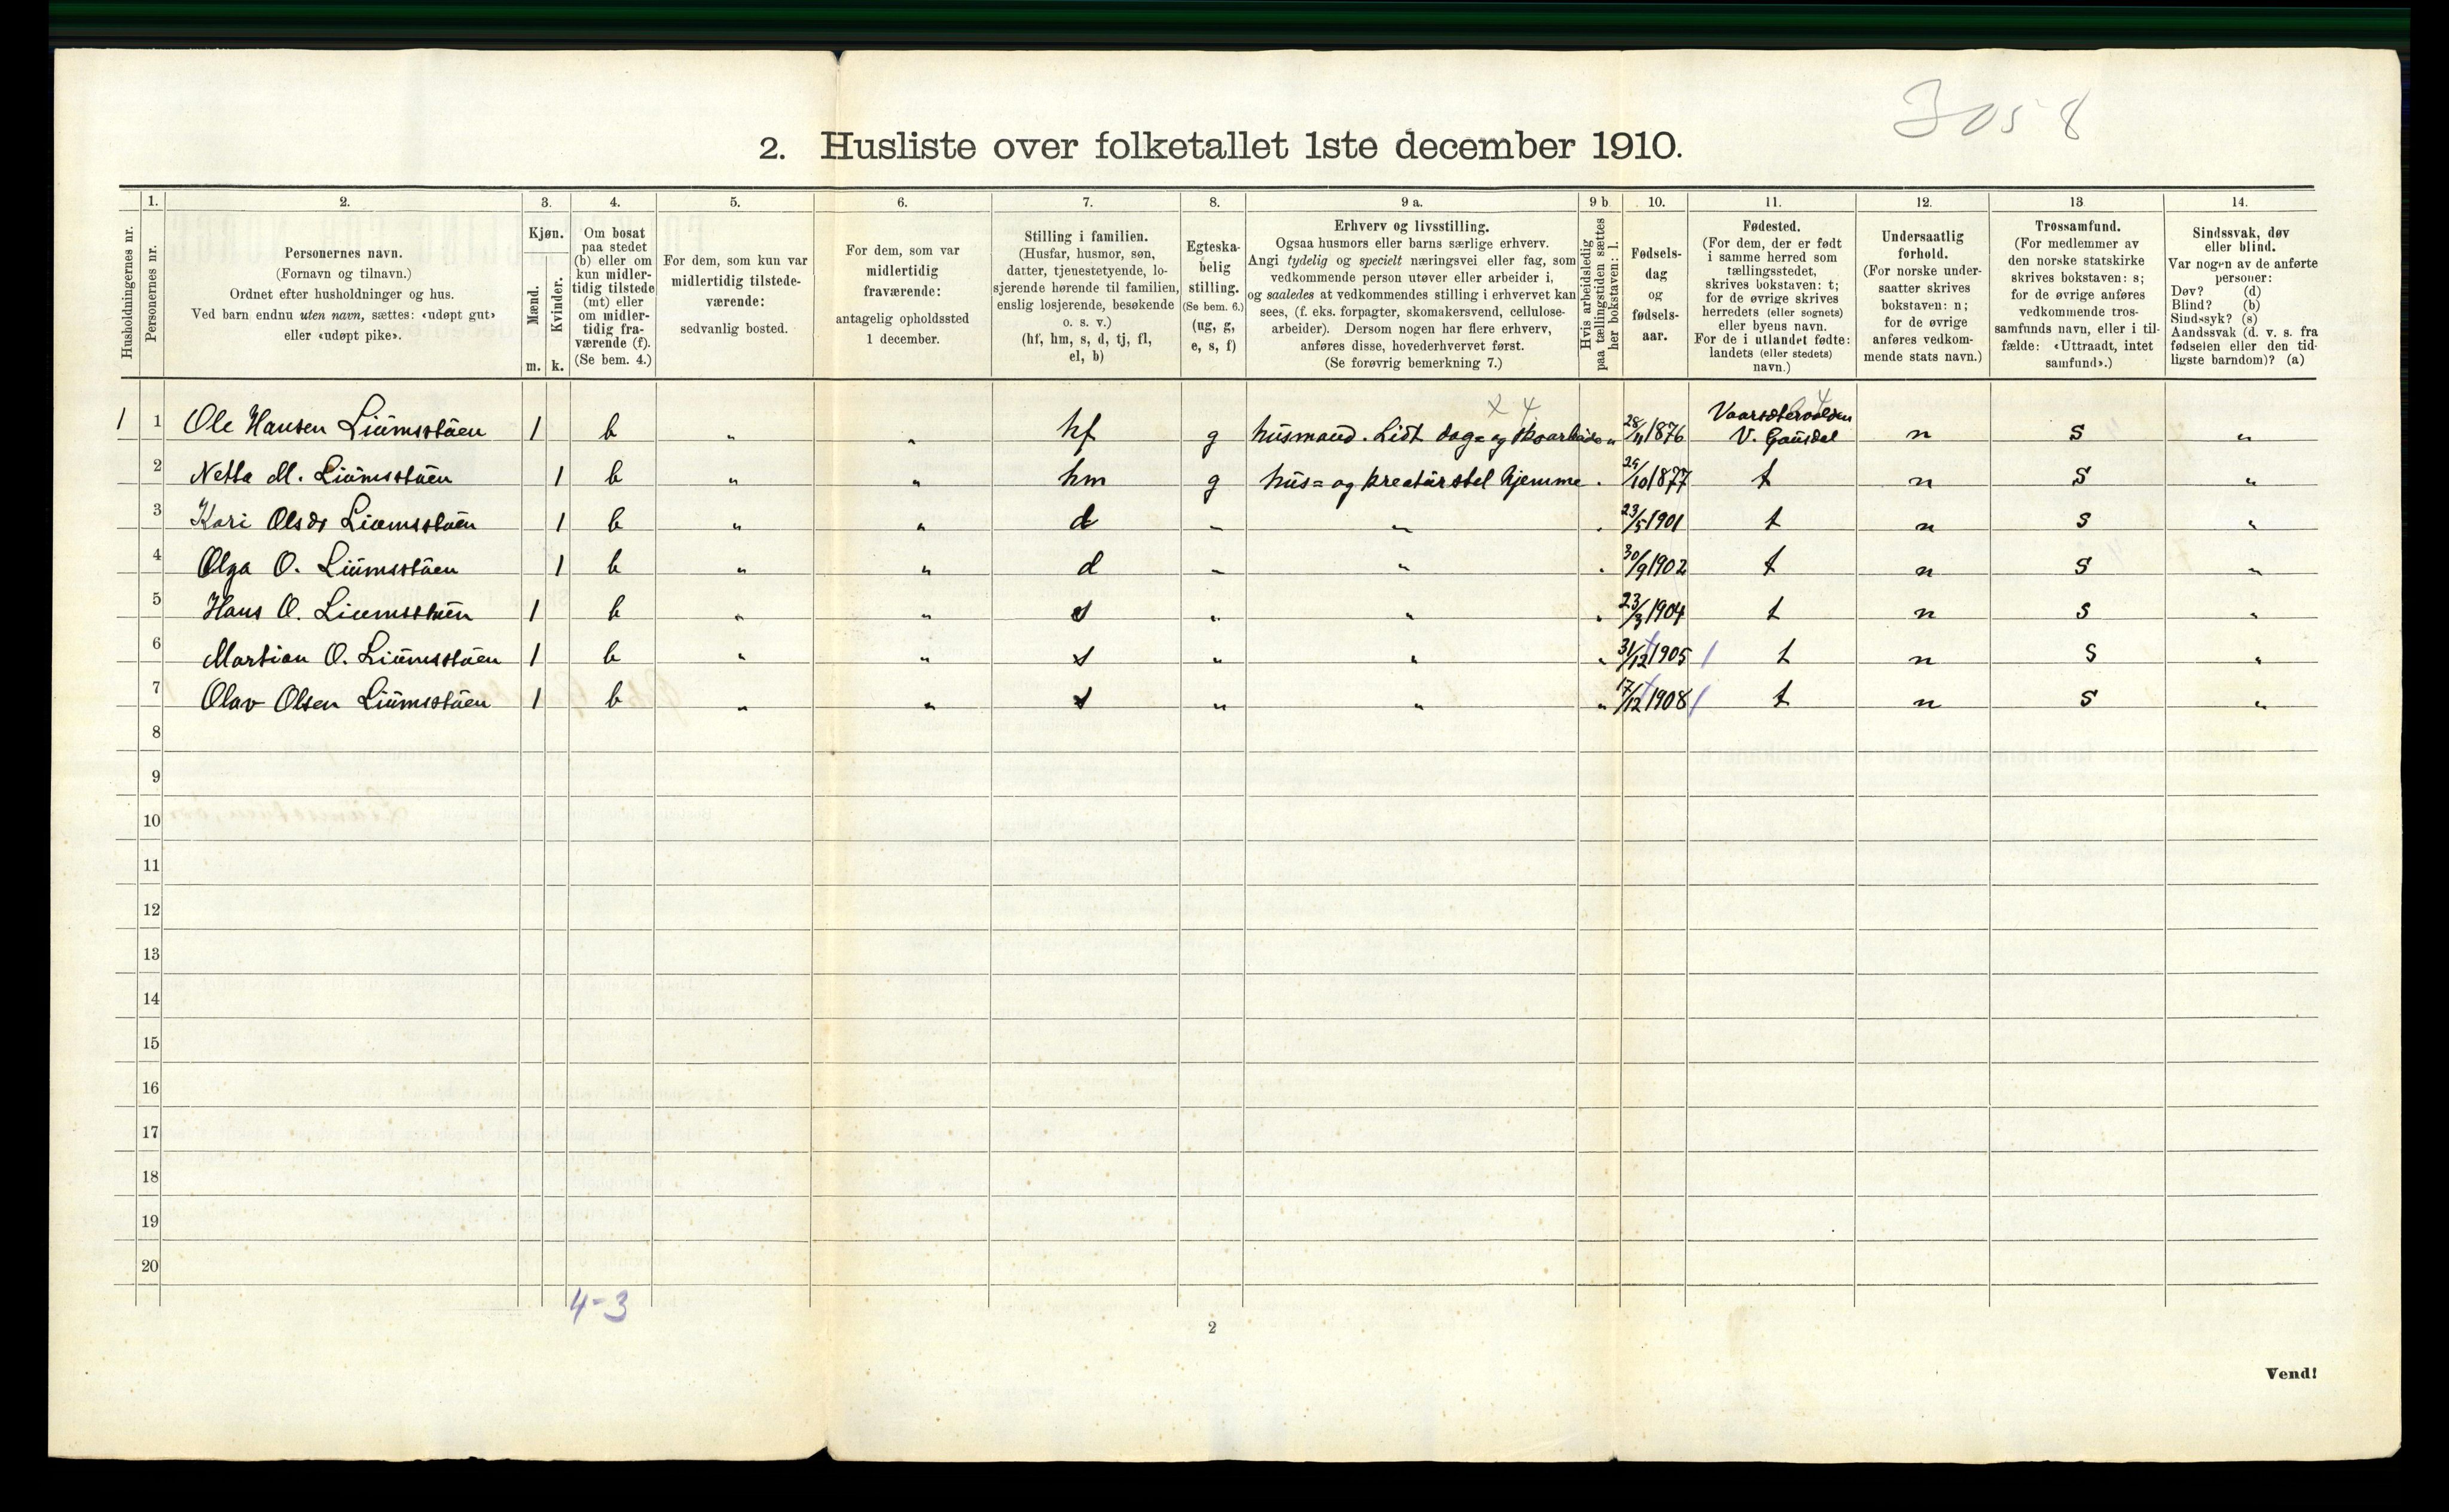 3058
2. Husliste over folketallet 1ste december 1910.
Husholdningernes nr.
1.
Personernes nr.
2.
Personernes navn.
(Fornavn og tilnavn.)
Ordnet efter husholdninger og hus.
Ved barn endnu uten navn, sættes: «udøpt gut»
eller «udøpt pike».
3.
Kjøn.
Mænd.
Kvinder.
m. k.
4.
Om bosat
paa stedet
(b) eller om
kun midler-
tidig tilstede
(mt) eller
om midler-
tidig fra-
værende (f).
(Se bem. 4.)
5.
For dem, som kun var
midlertidig tilstede-
værende:
sedvanlig bosted.
6.
For dem, som var
midlertidig
fraværende:
antagelig opholdssted
1 december.
7.
Stilling i familien.
(Husfar, husmor, søn,
datter, tjenestetyende, lo-
sjerende hørende til familien,
enslig losjerende, besøkende
o. s. v.)
(hf, hm, s, d, tj, fl,
el, b)
8.
Egteska-
belig
stilling.
(Se bem. 6.)
(ug, g,
e, s, f)
9 a.
Erhverv og livsstilling.
Ogsaa husmors eller barns særlige erhverv.
Angi tydelig og specielt næringsvei eller fag, som
vedkommende person utøver eller arbeider i,
og saaledes at vedkommendes stilling i erhvervet kan
sees, (f. eks. forpagter, skomakersvend, cellulose-
arbeider). Dersom nogen har flere erhverv,
anføres disse, hovederhvervet først.
(Se forøvrig bemerkning 7.)
9 b
Hvis arbeidsledig
paa tællingstiden sættes
her bokstaven: l.
10.
Fødsels-
dag
og
fødsels-
aar.
11.
Fødested.
(For dem, der er født
i samme herred som
tællingsstedet,
skrives bokstaven: t;
for de øvrige skrives
herredets (eller sognets)
eller byens navn.
For de i utlandet fødte:
landets (eller stedets)
navn.)
12.
Undersaatlig
forhold.
(For norske under-
saatter skrives
bokstaven: n;
for de øvrige
anføres vedkom-
mende stats navn.)
13
Trossamfund.
(For medlemmer av
den norske statskirke
skrives bokstaven: s;
for de øvrige anføres
vedkommende tros-
samfunds navn, eller i til-
fælde: «Uttraadt, intet
samfund».)
14.
Sindssvak, døv
eller blind.
Var nogen av de anførte
personer:
Døv? (d)
Blind? (b)
Sindssyk? (s)
Aandssvak (d. v. s. fra
fødselen eller den tid-
ligste barndom)? (a)
x 4
1 1 Ole Hansen Liumsstuen 1 b " " hf g husmand. Lidt dag= og skoarbeide " 28/11 1876 V. Gausdal n s "
2 Netta M. Liumsstuen 1 b " " hm g hus= og kreaturstel hjemme " 29/10 1877 t n s "
3 Kari Olsdr Liumsstuen 1 b " " d " " " 23/5 1901 t n s "
4 Olga O. Liumsstuen 1 b " " d " " " 30/9 1902 t n s "
5 Hans O. Liumsstuen 1 b " " s " " " 23/3 1904 t n s "
6 Martian O. Liumsstuen 1 b " " s " " " 31/12 1905 / t n s "
7 Olav Olsen Liumsstuen 1 b " " s " " " 17/12 1908 / t n s "
8
9
10
11
12
13
14
15
16
17
18
19
20
4-3
2
Vend!